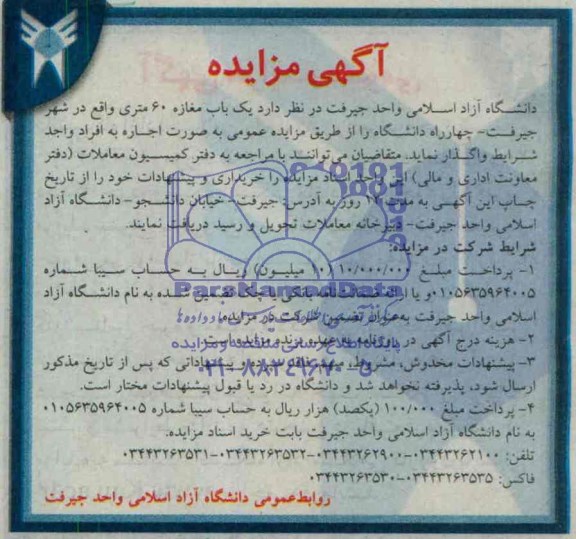 آگهی مزایده
دانشگاه آزاد اسلامی واحد جیرفت در نظر دارد یک باب مغازه ۶۰ متری واقع در شهر
جیرفت- چهارراه دانشگاه را از طریق مزایده عمومی به صورت اجاره به افراد واجد
شرایط واگذار نماید. متقاضیان می‌توانند با مراجعه به دفتر کمیسیون معاملات (دفتر
معاونت اداری و مالی) این واحد اسناد مزایده را خریداری و پیشنهادات خود را از تاریخ
چاپ این آگهی به مدت روز به آدرس: جیرفت- خیابان دانشجو- دانشگاه آزاد
اسلامی واحد جیرفت- دبیرخانه معاملات تحویل و رسید دریافت نمایند.
شرایط شرکت در مزایده:
۱- پرداخت مبلغ ۱۰/۰۰۰/۰۰۰ (۱۰ میلیون) ریال به حساب سیبا شماره
۰۱۰۵۶۳۵۹۶۴۰۰۵ و یا ارائه ضمانت‌نامه بانکی یا چک تضمین شده به نام دانشگاه آزاد
اسلامی واحد جیرفت به‌عنوان تضمین شرکت در مزایده.
۲- هزینه درج آگهی در روزنامه به عهده برنده مزایده است.
۳- پیشنهادات مخدوش، مشروط، مبهم، فاقد سپرده و پیشنهاداتی که پس از تاریخ مذکور
ارسال شود، پذیرفته نخواهد شد و دانشگاه در رد یا قبول پیشنهادات مختار است.
۴- پرداخت مبلغ ۱۰۰/۰۰۰ (یکصد) هزار ریال به حساب سیبا شماره ۰۱۰۵۶۳۵۹۶۴۰۰۵
به نام دانشگاه آزاد اسلامی واحد جیرفت بابت خرید اسناد مزایده.
تلفن: ۰۳۴۴۳۲۶۲۱۰۰-۰۳۴۴۳۲۶۲۹۰۰-۰۳۴۴۳۲۶۳۵۳۲-۰۳۴۴۳۲۶۳۵۳۱
فاکس: ۰۳۴۴۳۲۶۳۵۳۵-۰۳۴۴۳۲۶۳۵۳۰
روابط‌عمومی دانشگاه آزاد اسلامی واحد جیرفت
ParsNamadData
پایگاه اطلاع رسانی مناقصه و مزایده
۰۲۱-۸۸۳۴۹۶۷۰